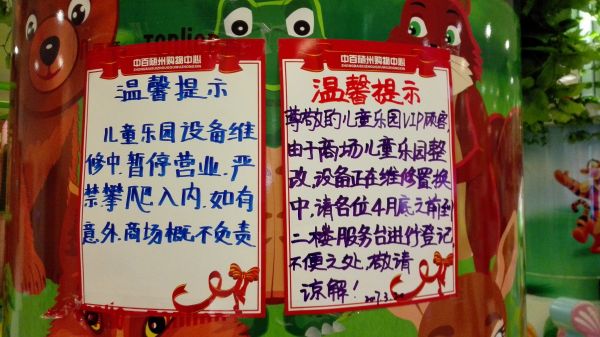 Toplion
中百随州购物中心
温馨提示
儿童乐园设备维
修中.暂停营业.严
禁攀爬入内.如有
意外.商场概不负责
中百随州购物中心
温馨提示
尊敬的儿童乐园VIP顾客,
由于商场儿童乐园整
改,设备正在维修置换
中,请各位4月底之前到
二楼服务台进行登记,
不便之处,敬请
谅解!